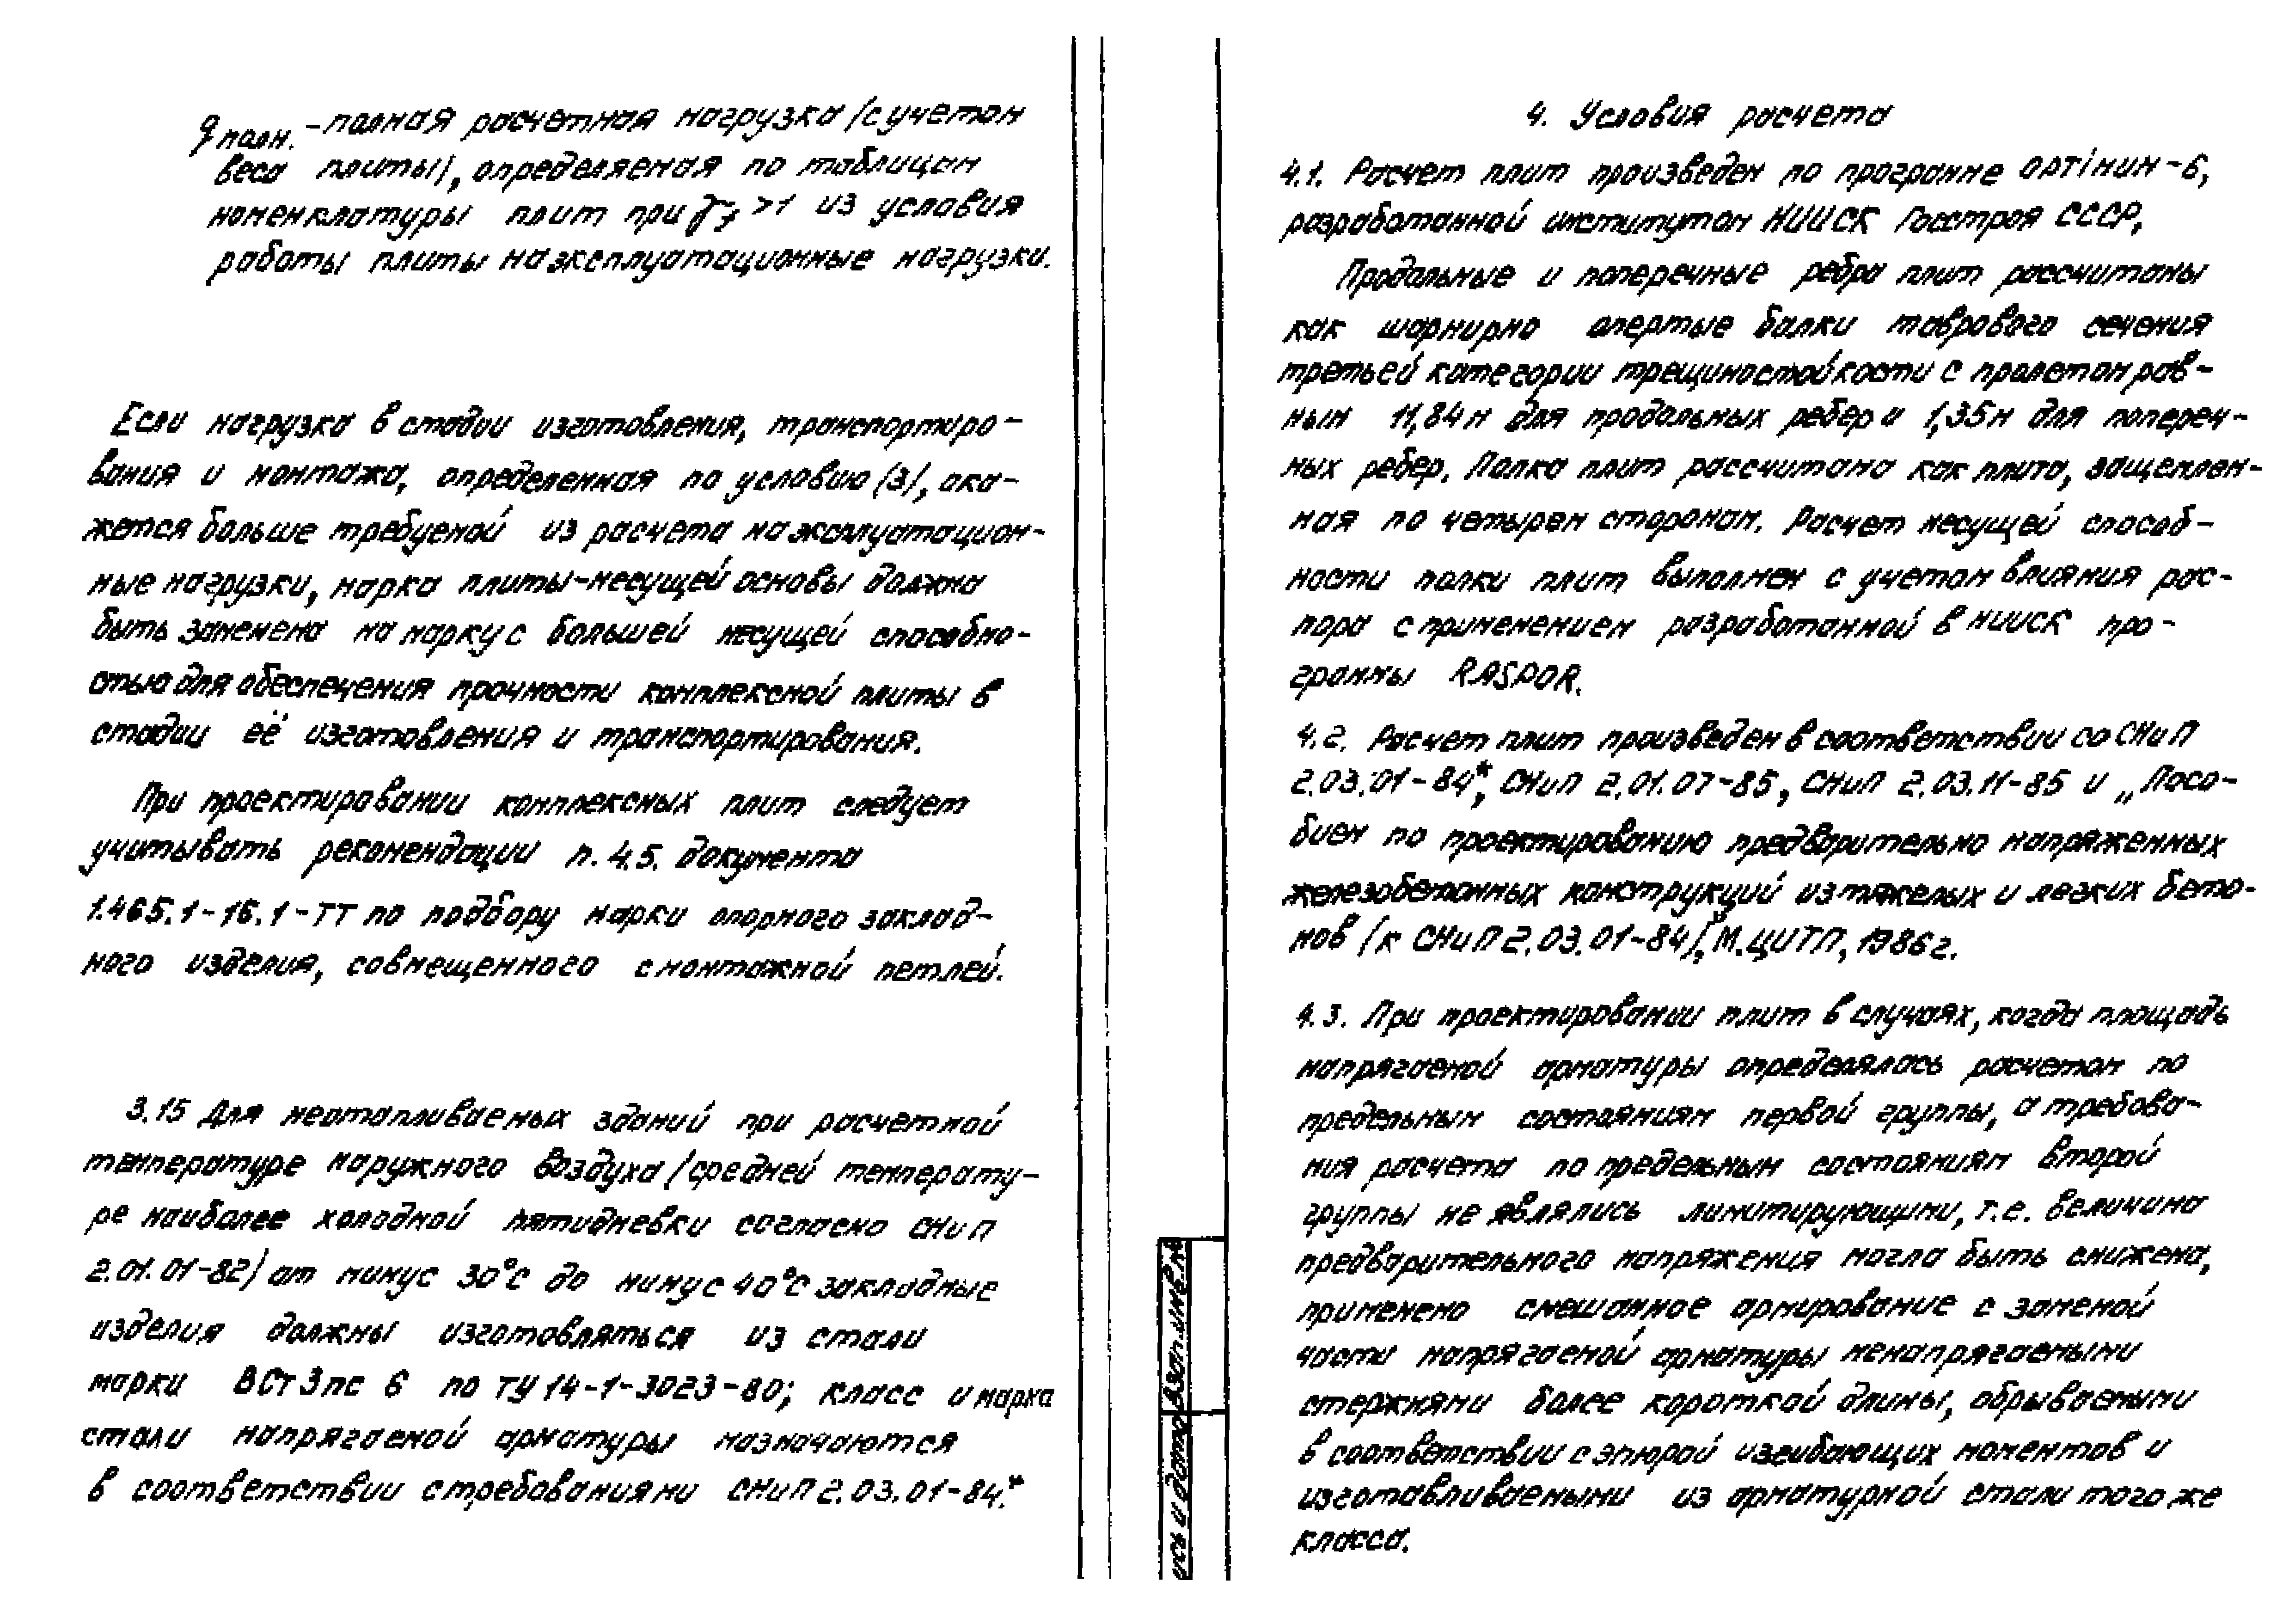 q полн. - полная расчетная нагрузка /с учетом
веса плиты/, определяемая по таблицам
номенклатуры плит при γf >1 из условия
работы плиты на эксплуатационные нагрузки.
Если нагрузка в стадии изготовления, транспортиро-
вания и монтажа, определенная по условию (3/, ока-
жется больше требуемой из расчета на эксплуатацион-
ные нагрузки, марка плиты-несущей основы должна
быть заменена на марку с большей несущей способно-
стью для обеспечения прочности комплексной плиты в
стадии её изготовления и транспортирования.
При проектировании комплексных плит следует
учитывать рекомендации п. 4.5. документа
1.465.1-16.1-ТТ по подбору марки опорного заклад-
ного изделия, совмещенного с монтажной петлей.
3.15 Для неотапливаемых зданий при расчетной
температуре наружного воздуха /средней температу-
ре наиболее холодной пятидневки согласно СНиП
2.01.01-82) от минус 30°С до минус 40°С закладные
изделия должны изготовляться из стали
марки ВСт3пс 6 по ТУ 14-1-3023-80; класс и марка
стали напрягаемой арматуры назначаются
в соответствии с требованиями СНиП 2.03.01-84.*
4. Условия расчета
4.1. Расчет плит произведен по программе ОРТiМИМ-6,
разработанной институтом НИИСК Госстроя СССР,
Продольные и поперечные ребра плит рассчитаны
как шарнирно опертые балки таврового сечения
третьей категории трещиностойкости с пролетом рав-
ным 11,84м для продольных ребер и 1,35м для попереч-
ных ребер. Полка плит рассчитана как плита, защеплен-
ная по четырем сторонам. Расчет несущей способ-
ности полки плит выполнен с учетом влияния рас-
пора с применением разработанной в НИИСК про-
граммы RASPOR.
4.2. Расчет плит произведен в соответствии со СНиП
2.03.01-84*, СНиП 2.01.07-85, СНиП 2.03.11-85 и „Посо-
бием по проектированию предварительно напряженных
железобетонных конструкций из тяжелых и легких бето-
нов /к СНиП 2.03.01-84/", М. ЦИТП, 1986г.
4.3. При проектировании плит в случаях, когда площадь
напрягаемой арматуры определялась расчетом по
предельным состояниям первой группы, а требова-
ния расчета по предельным состояниям второй
группы не являлись лимитирующими, т.е. величина
предварительного напряжения могла быть снижена,
применено смешанное армирование с заменой
части напрягаемой арматуры ненапрягаемыми
стержнями более короткой длины, обрываемыми
в соответствии с эпюрой изгибающих моментов и
изготавливаемыми из арматурной стали того же
класса.
ись и дата
Взам.инв.№